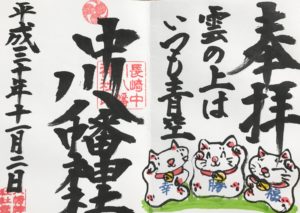 奉拝
雲の上は
いつも青空
幸
勝
福
長崎中
中川八幡神社
平成三十年十一月二日